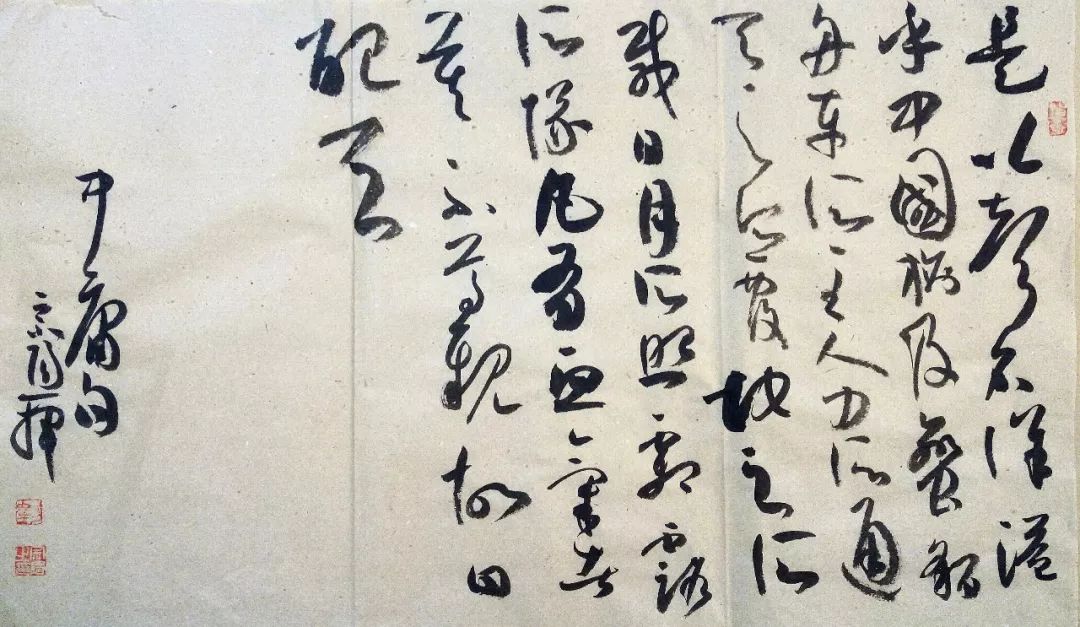 是以聲名洋溢
乎中國施及蠻貊
舟車所至人力所通
天之所覆地之所
載日月所照霜露
所隊凡有血氣者
莫不尊親故曰
配天
中庸句